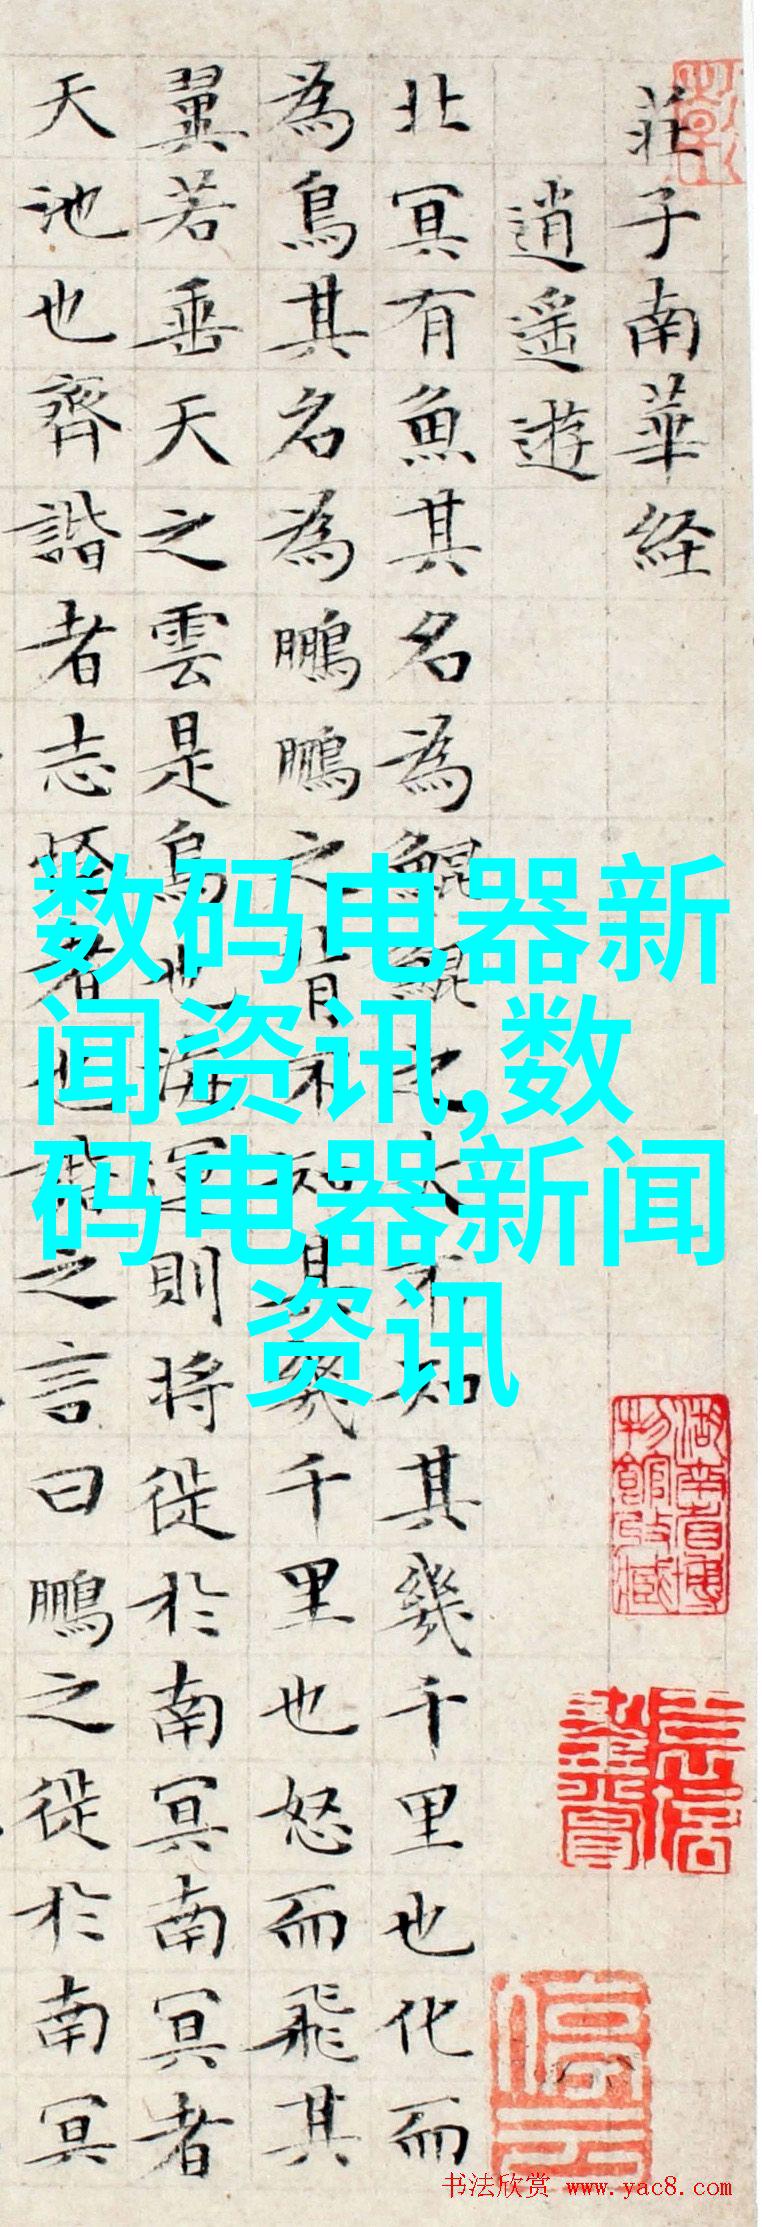 莊子南華経
逍遥遊
北冥有魚其名為鯤鯤之大不知其幾千里也化而
為鳥其名為鵬鵬之背不知其幾千里也怒而飛其
翼若垂天之雲是鳥也海運則将徙於南冥南冥者
天池也齊諧者志怪者也諧之言曰鵬之徙於南冥
数码电器新
闻资讯,数
码电器新闻
资讯
湖南省博
物館收藏
书法欣赏 www.yac8.com